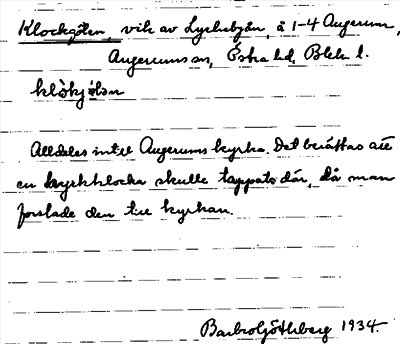 Klockgölen, vik av Lyckebyån, å 1-4 Augerum,
Augerums sn, Östra hd, Blek. l.
klòkjø̀lən
Alldeles intill Augerums kyrka. Det berättas att
en kyrkklocka skulle tappats där, då man
forslade den till kyrkan.
Barbro Göthberg 1934.